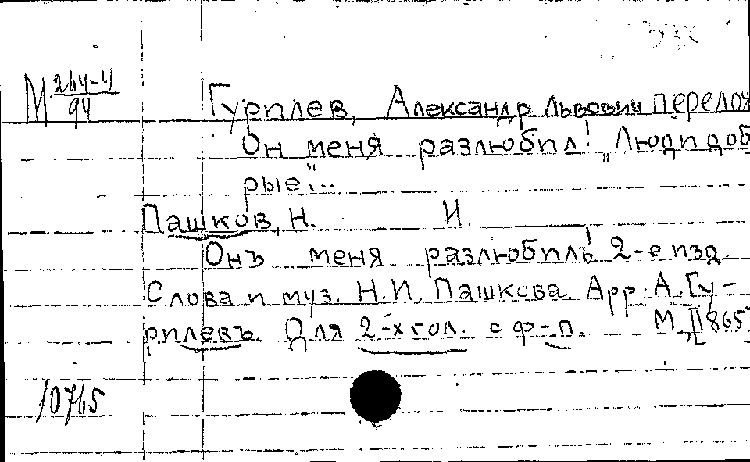 М 244-4/94
Гурилев, Александр Львович перелож
Он меня разлюбил! „Люди доб
рые"...
Пашков, Н. И
Онъ меня разлюбилъ! 2-е изд.
Слова и муз. Н.И. Пашкова. Арр. А. Гу-
рилевъ. Для 2-х гол. с ф-п. М., [1865]
10765